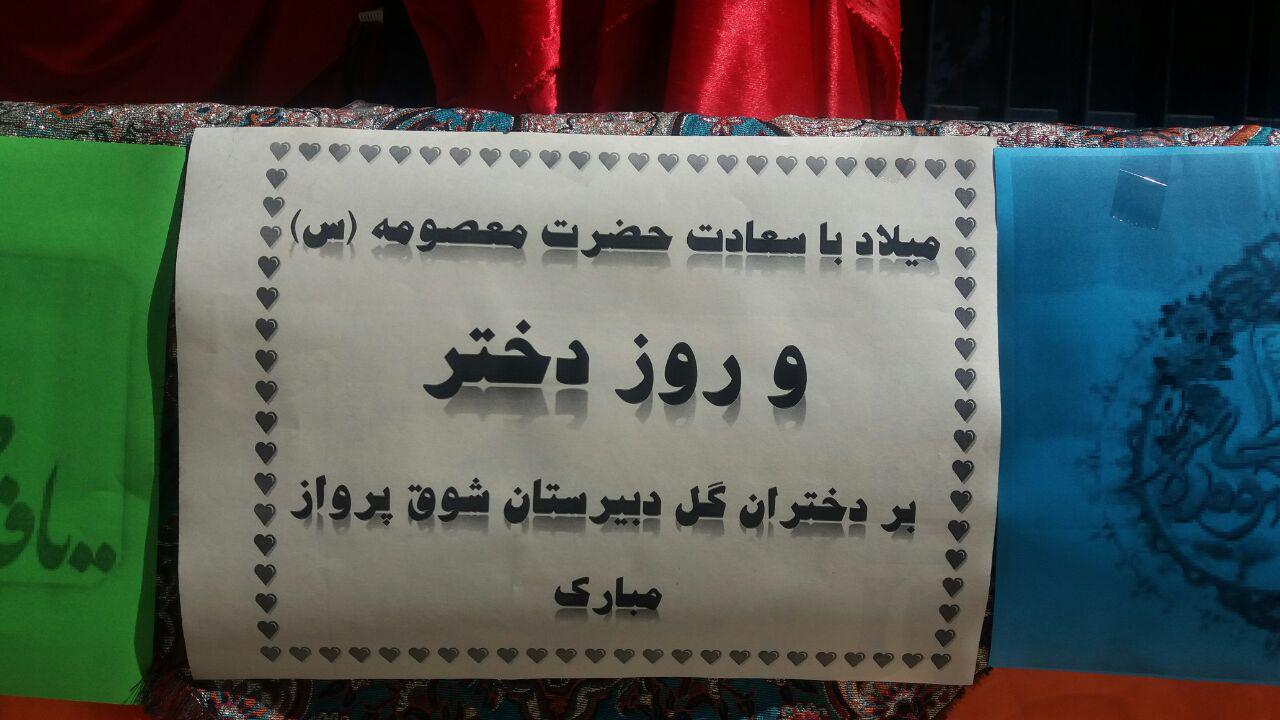 میلاد با سعادت حضرت معصومه (س)
و روز دختر
بر دختران گل دبیرستان شوق پرواز
مبارک